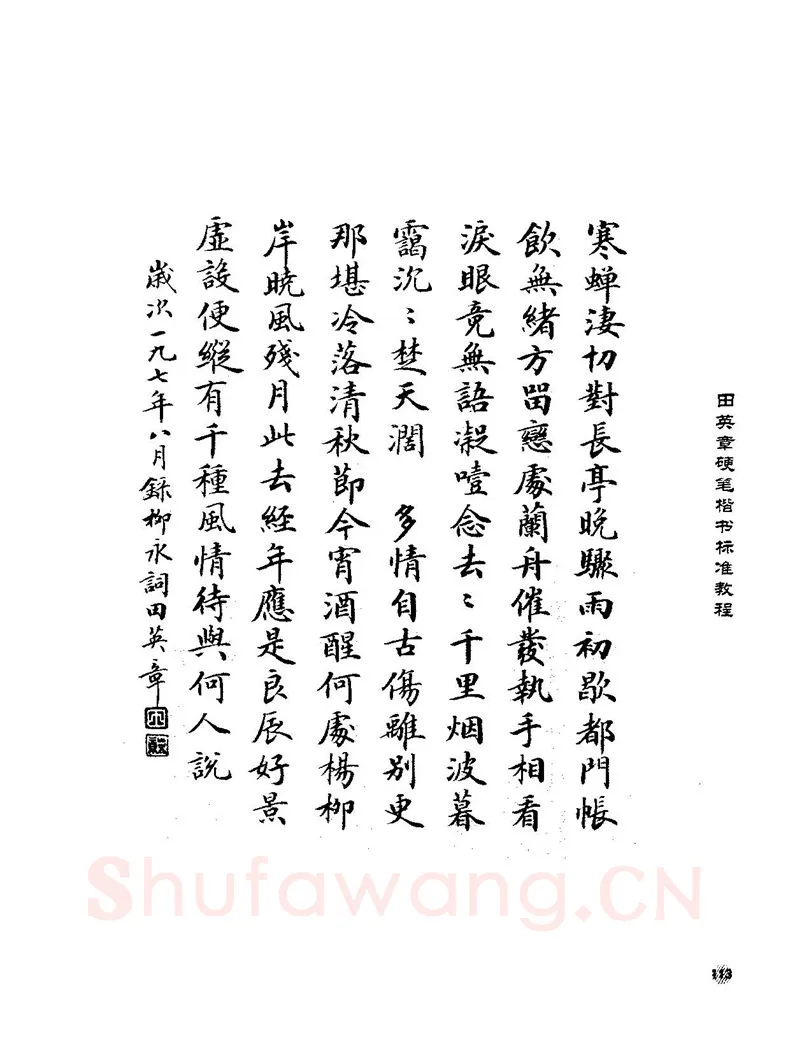 寒蟬淒切對長亭晚驟雨初歇都門帳
飲無緒方留戀處蘭舟催發執手相看
淚眼竟無語凝噎念去〻千里烟波暮
靄沉〻楚天濶 多情自古傷離別更
那堪冷落清秋節今宵酒醒何處楊柳
岸曉風殘月此去經年應是良辰好景
虛設便縱有千種風情待與何人說
歲次一九七年八月錄柳永詞田英章
田英章硬笔楷书标准教程
Shufawang.CN
113